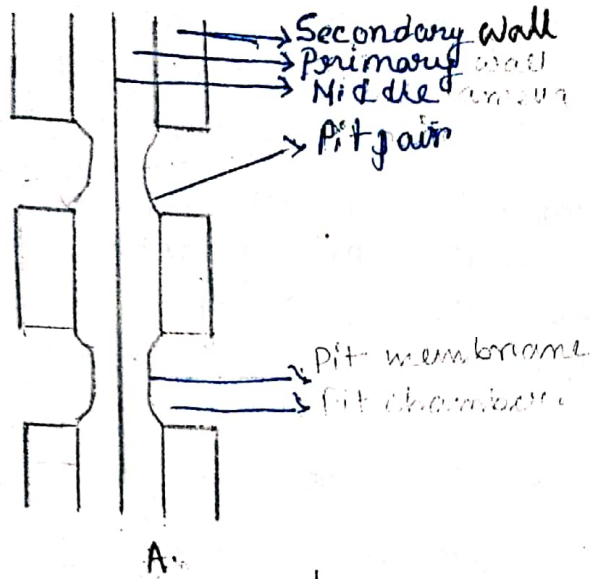 Secondary wall
Primary wall
Middle
Pit pair
Pit membrane
Pit chamber
A.